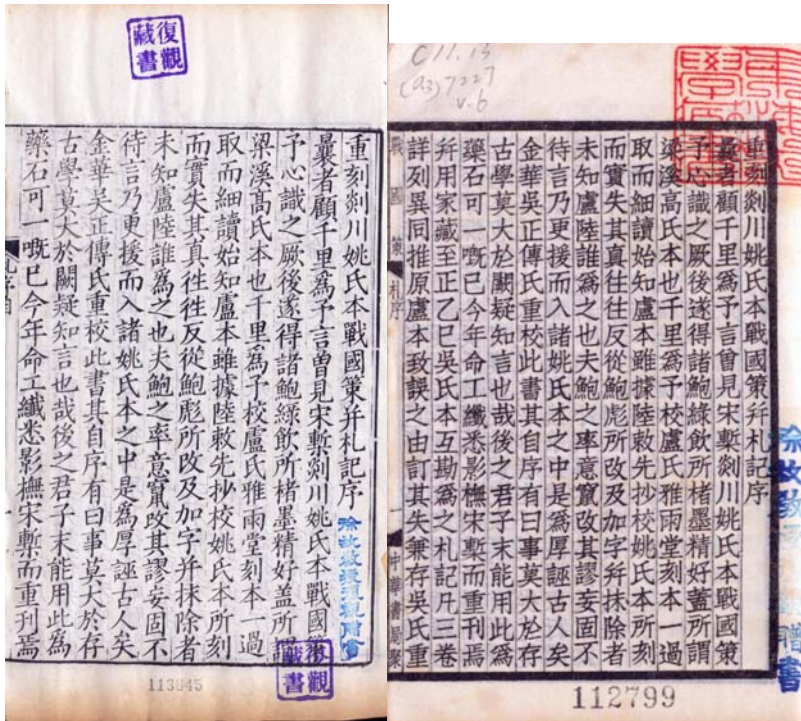 復觀
藏書
重刻剡川姚氏本戰國策并札記序
曩者顧千里爲予言曾見宋槧剡川姚氏本戰國策
予心識之厥後遂得諸鮑綠飲所楮墨精好盖所
梁溪高氏本也千里爲予校盧氏雅雨堂刻本一過
取而細讀始知盧本雖據陸敕先抄校姚氏本所刻
而實失其真徃徃反從鮑彪所改及加字并抹除者
未知盧陸誰爲之也夫鮑之率意竄改其謬妄固不
待言乃更援而入諸姚氏本之中是爲厚誣古人矣
金華吳正傳氏重校此書其自序有曰事莫大於存
古學莫大於闕疑知言也哉後之君子未能用此爲
藥石可一嘅已今年命工纖悉影橅宋槧而重刊焉
復觀
藏書
113845
C11.13
(a3)7227
v.6
重刻剡川姚氏本戰國策幷札記序
曩者顧千里爲予言曾見宋槧剡川姚氏本戰國策
予心識之厥後遂得諸鮑綠飲所楮墨精好蓋所謂
梁溪高氏本也千里爲予校盧氏雅雨堂刻本一過
取而細讀始知盧本雖據陸敕先抄校姚氏本所刻
而實失其真往往反從鮑彪所改及加字幷抹除者
未知盧陸誰爲之也夫鮑之率意竄改其謬妄固不
待言乃更援而入諸姚氏本之中是爲厚誣古人矣
金華吳正傳氏重校此書其自序有曰事莫大於存
古學莫大於闕疑知言也哉後之君子未能用此爲
藥石可一嘅已今年命工纖悉影橅宋槧而重刊焉
幷用家藏至正乙巳吳氏本互勘爲之札記凡三卷
詳列異同推原盧本致誤之由訂其失兼存吳氏重
戰國策 札序 一 中華書局聚
112799